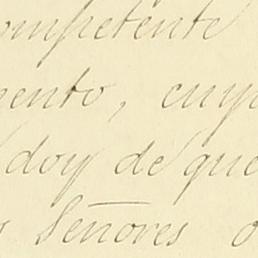 ompetente
mento, cuya
doy de que
Señores